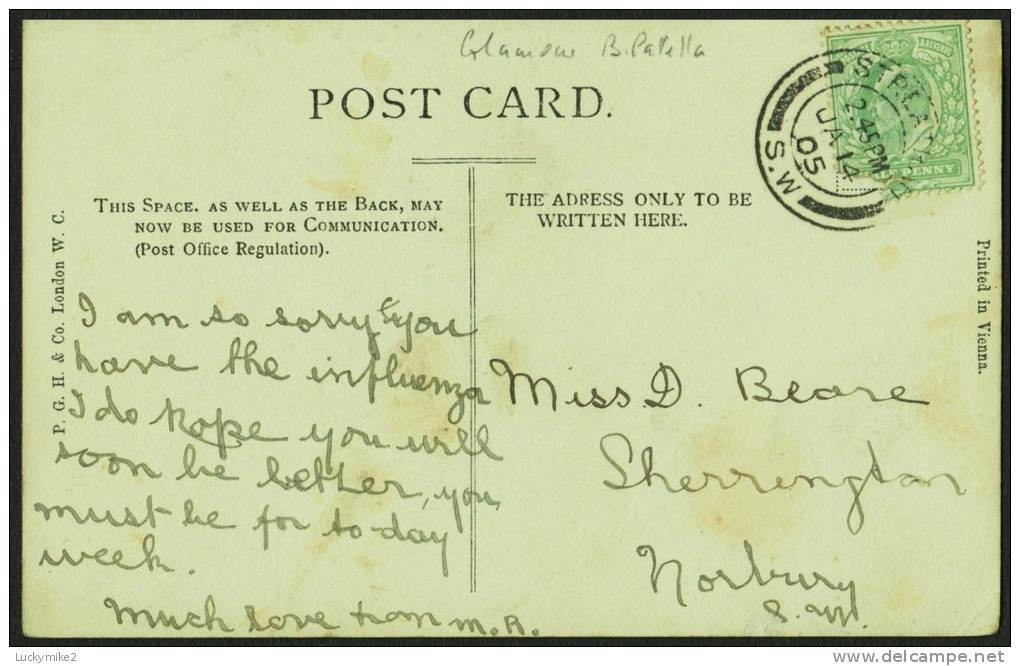 Glamour B. Patella
POST CARD.
STREATHAM
2.45PM
JA 14
05
S.W
PENNY
THIS SPACE, AS WELL AS THE BACK, MAY
NOW BE USED FOR COMMUNICATION.
(Post Office Regulation).
THE ADRESS ONLY TO BE
WRITTEN HERE.
P. G. H. & Co. London W. C.
Printed in Vienna.
I am so sorry you
have the influenza
I do hope you will
soon be better, you
must be for to-day
week.
Much love from M.R.
Miss D. Beare
Sherrington
Norbury
S.W.
Luckymike2
www.delcampe.net